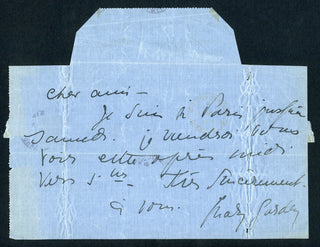 cher ami —
Je suis à Paris jusqu'à
samedi. je viendrai
vous cette après midi
vers 5 hrs Très sincèrement
à vous. Mary Garden